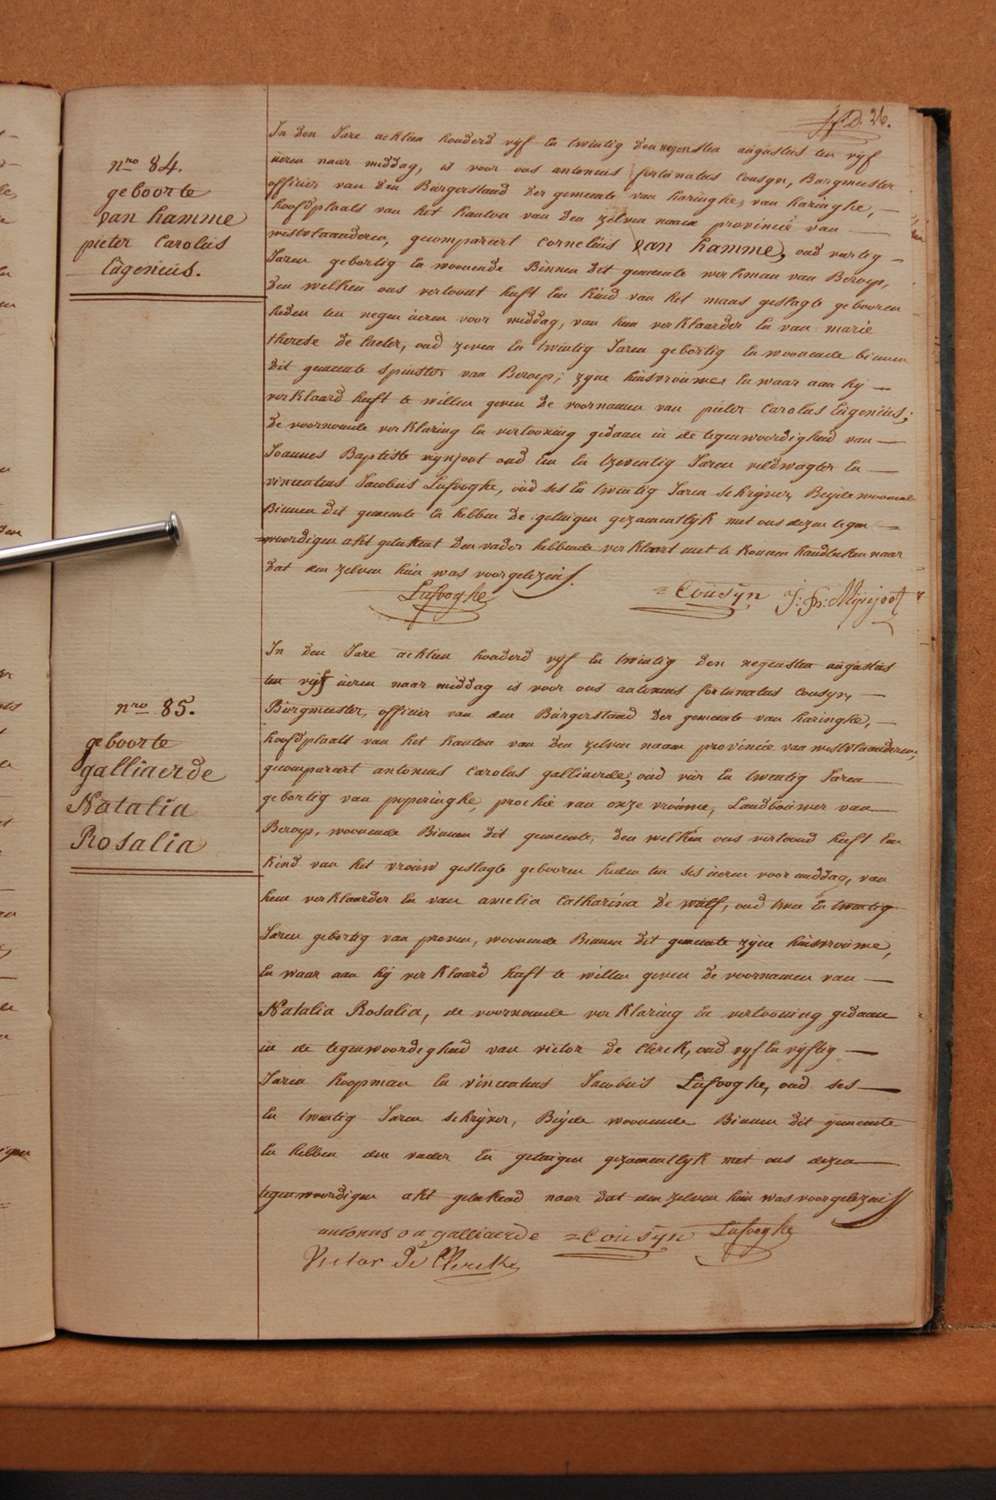 26.
nro 84.
geboorte
van hamme
pieter Carolus
Eugenius.
In den Jare achtien honderd vyf En twintig den negensten augustus ten vyf
üeren naar middag, is voor ons antonius fortunatus cousyn, Burgmeester
officier van den Burgerstand der gemeente van haringhe, van haringhe,
hoofdplaats van het kanton van den zelven naam provincie van
westvlaanderen, gecompareert cornelius van hamme, oud veertig
Jaren geboortig En woonende Binnen dit gemeente werkman van Beroep,
den welken ons vertoont heeft Een kind van het mans geslagte gebooren
heden ten negen üeren voor middag, van hem verklaarder En van marie
therese De laeter, oud zeven En twintig Jaren gebortig En woonende binnen
dit gemeente spinster van Beroep; zyne huisvrouwe En waar aan hij
verklaard heeft te willen geven de voornamen van pieter Carolus Eugenius;
de voornoemde verklaring En vertooning gedaan in de tegenwoordigheid van
Joannes Baptiste mynjoot oud Een En tzeventig Jaren veldwagter En
vincentius Jacobus Lufooghe, oud ses En twintig Jaren schryver, Beyde woonende
Binnen dit gemeente En hebben de getuigen gezamentlyk met ons dezen tegen
woordigen akt geteekent den vader hebbende verklaert niet te konnen handteeken naar
dat den zelven hun was voorgelezen.
Lufooghe Cousyn J: B: Mynjoot
nro 85.
geboorte
galliaerde
Natalia
Rosalia
In den Jare achtien honderd vyf En twintig den negensten augustus
ten vyf üeren naar middag is voor ons antonius fortunatus cousyn,
Burgmeester, officier van den Burgerstand der gemeente van haringhe,
hoofdplaats van het kanton van den zelven naam provincie van westvlaanderen,
gecompareert antonius Carolus galliaerde, oud vier En twentig Jaren
gebortig van poperinghe, prochie van onze vrouwe, Landbouwer van
Beroep, woonende Binnen dit gemeente, den welken ons vertoond heeft Een
kind van het vrouw geslagte gebooren heden ten ses üeren voor middag, van
hem verklaarder En van amelia Catharina De wulf, oud twee En twintig
Jaren gebortig van proven, woonende Binnen dit gemeente zyne huisvrouwe,
En waar aan hij verklaard heeft te willen geven de voornamen van
Natalia Rosalia, de voornoemde verklaring En vertooning gedaan
in de tegenwoordigheid van victor De Clerck, oud vyf En vyftig
Jaren koopman En vincentius Jacobus Lufooghe, oud ses
En twintig Jaren schryver, Beyde woonende Binnen dit gemeente
En hebben den vader En getuigen gezamentlyk met ons dezen
tegenwoordigen akt geteekend naar dat den zelven hun was voorgelezen
antonus galliaerde Cousyn Lufooghe
Victor De Clercke